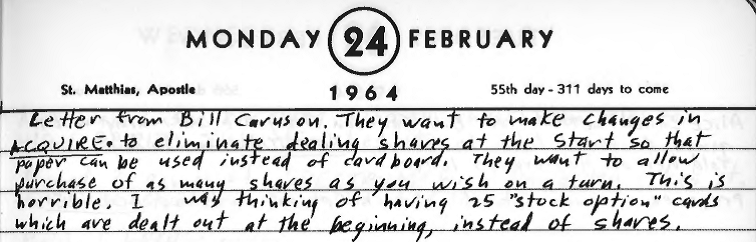 MONDAY 24 FEBRUARY
St. Matthias, Apostle 1964 55th day - 311 days to come
Letter from Bill Caruson. They want to make changes in
ACQUIRE. to eliminate dealing shares at the start so that
paper can be used instead of cardboard. They want to allow
purchase of as many shares as you wish on a turn. This is
horrible. I was thinking of having 25 "stock option" cards
which are dealt out at the beginning, instead of shares.